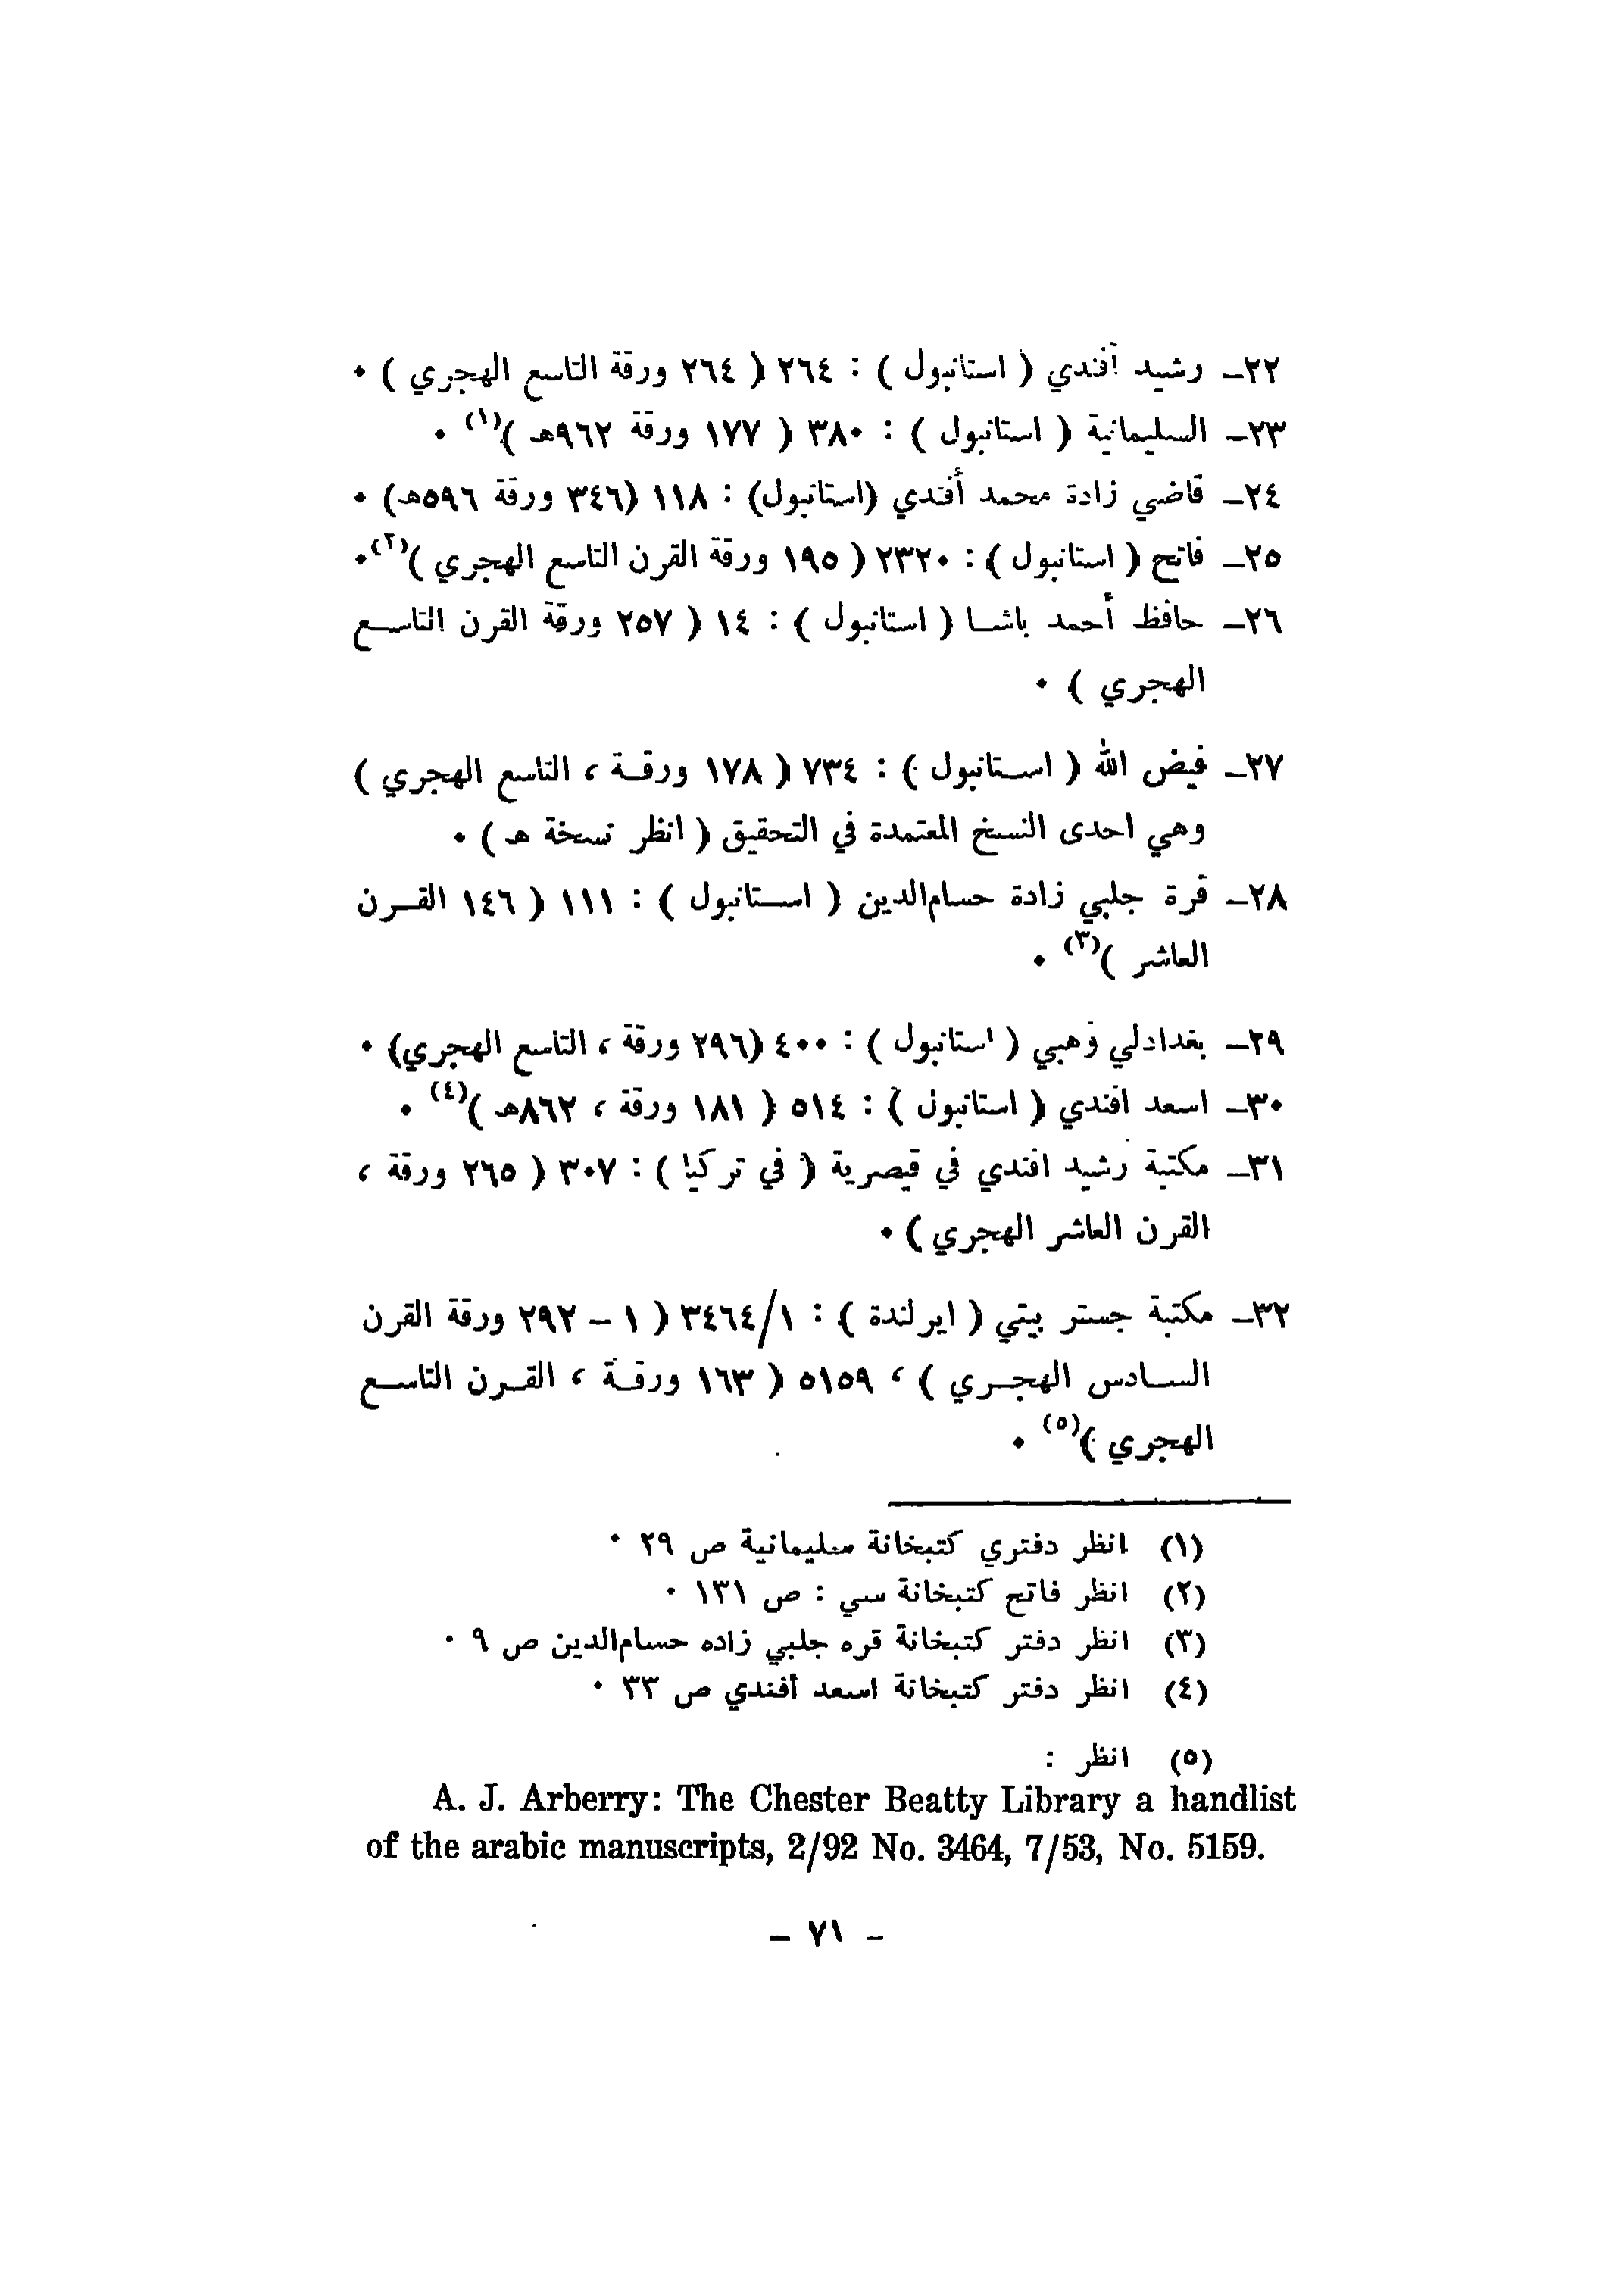 ٢٢ـ رشيد أفندي ( استانبول ) : ٢٦٤ ( ٢٦٤ ورقة التاسع الهجري ) ٠
٢٣ـ السليمانية ( استانبول ) : ٣٨٠ ( ١٧٧ ورقة ٩٦٢هـ )(١) ٠
٢٤ـ قاضي زادة محمد أفندي (استانبول) : ١١٨ (٣٤٦ ورقة ٥٩٦هـ) ٠
٢٥ـ فاتح ( استانبول ) : ٢٣٢٠ ( ١٩٥ ورقة القرن التاسع الهجري )(٢)٠
٢٦ـ حافظ أحمد باشا ( استانبول ) : ١٤ ( ٢٥٧ ورقة القرن التاسع
الهجري ) ٠
٢٧ـ فيض الله ( استانبول ) : ٧٣٤ ( ١٧٨ ورقة ، التاسع الهجري )
وهي احدى النسخ المعتمدة في التحقيق ( انظر نسخة هـ ) ٠
٢٨ـ قرة جلبي زادة حسام‌الدين ( استانبول ) : ١١١ ( ١٤٦ القرن
العاشر )(٣) ٠
٢٩ـ بغدادلي وهبي ( استانبول ) : ٤٠٠ (٢٩٦ ورقة ، التاسع الهجري) ٠
٣٠ـ اسعد افندي ( استانبول ) : ٥١٤ ( ١٨١ ورقة ، ٨٦٢هـ )(٤) ٠
٣١ـ مكتبة رشيد افندي في قيصرية ( في تركيا ) : ٣٠٧ ( ٢٦٥ ورقة ،
القرن العاشر الهجري ) ٠
٣٢ـ مكتبة جستر بيتي ( ايرلندة ) : ٣٤٦٤/١ ( ١ - ٢٩٢ ورقة القرن
السادس الهجري ) ، ٥١٥٩ ( ١٦٣ ورقة ، القرن التاسع
الهجري )(٥) ٠
(١) انظر دفتري كتبخانة سليمانية ص ٢٩ ٠
(٢) انظر فاتح كتبخانة سي : ص ١٣١ ٠
(٣) انظر دفتر كتبخانة قره جلبي زاده حسام‌الدين ص ٩ ٠
(٤) انظر دفتر كتبخانة اسعد أفندي ص ٣٣ ٠
(٥) انظر :
A. J. Arberry: The Chester Beatty Library a handlist
of the arabic manuscripts, 2/92 No. 3464, 7/53, No. 5159.
- ٧١ -